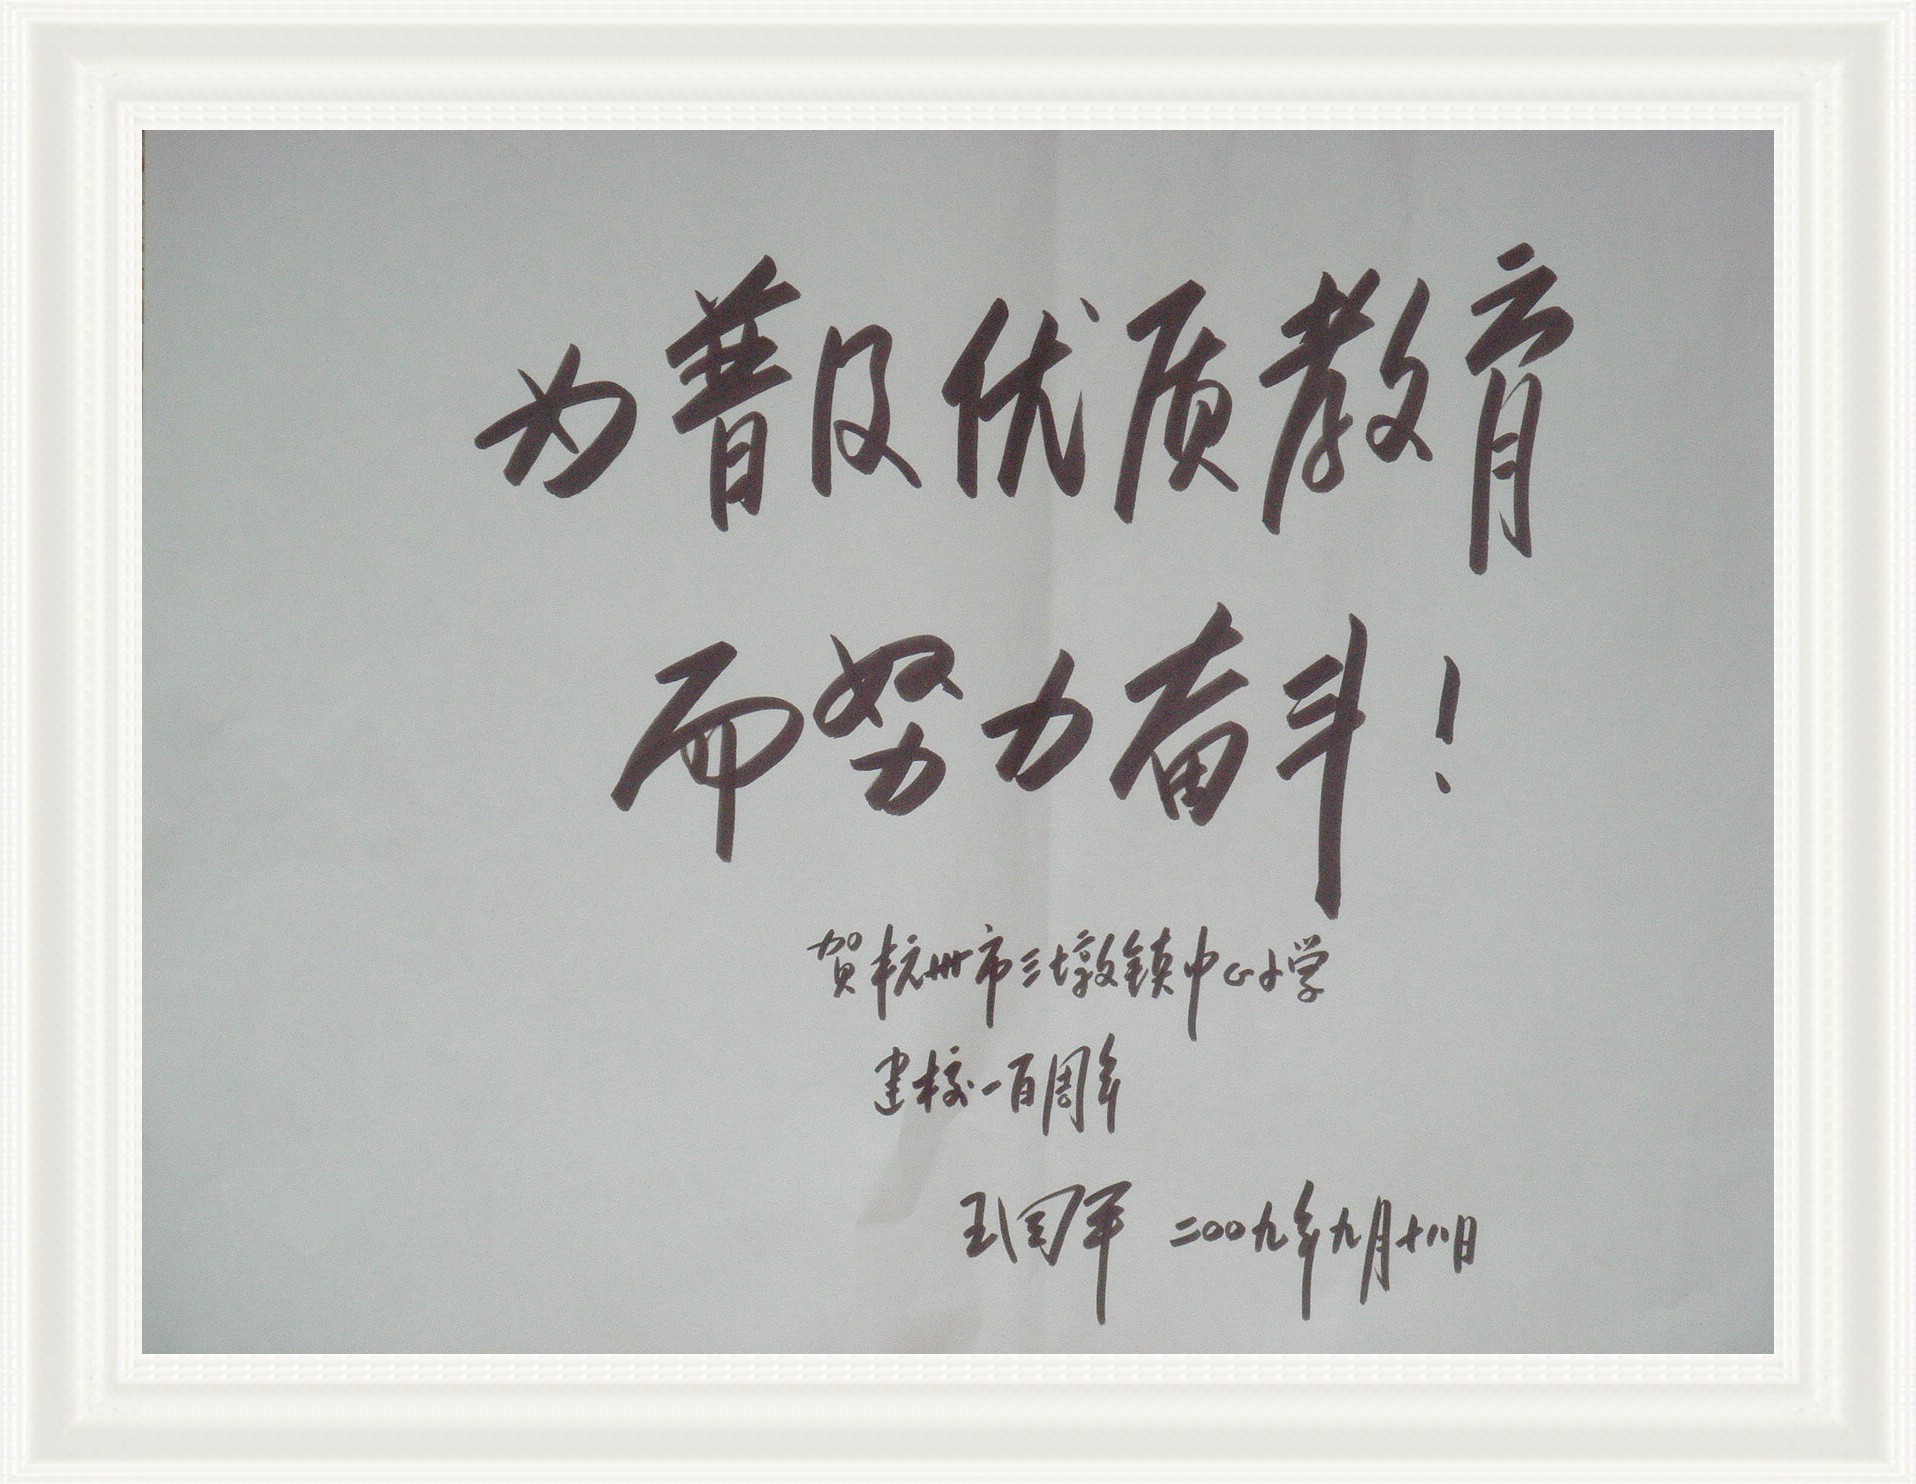 为普及优质教育
而努力奋斗！
贺杭州市三墩镇中心小学
建校一百周年
王国平 二00九年九月十八日